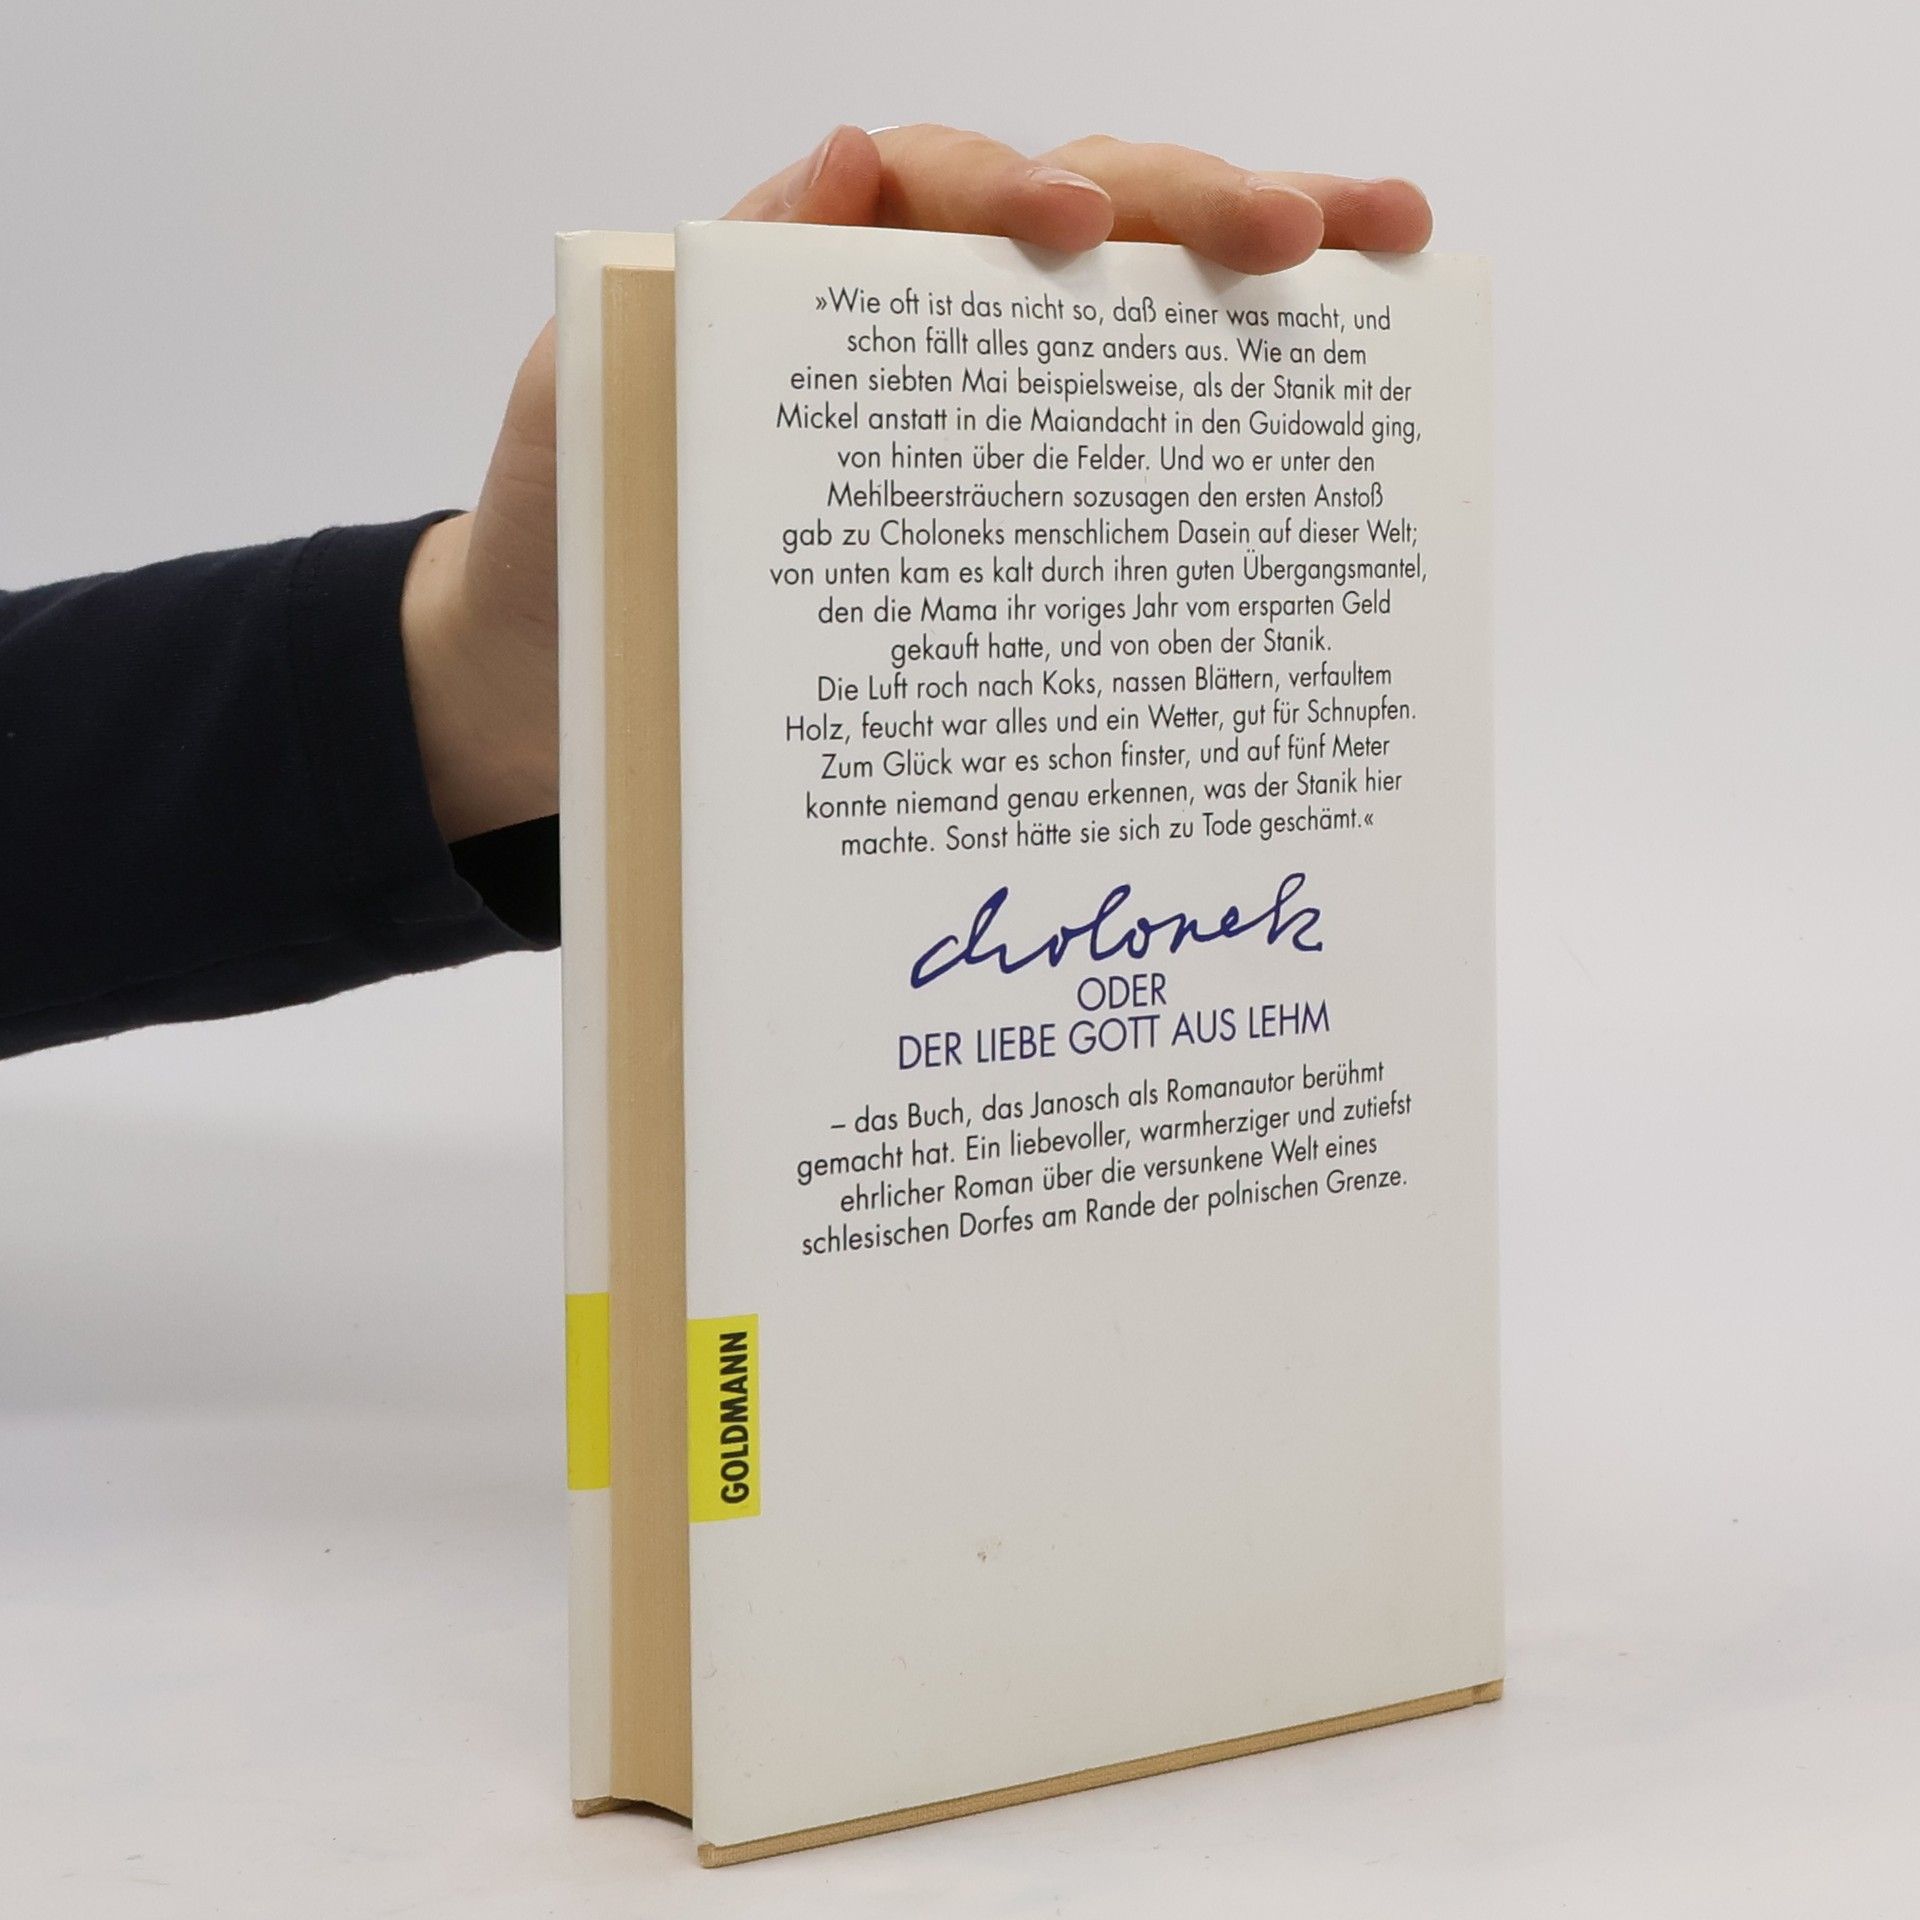 »Wie oft ist das nicht so, daß einer was macht, und
schon fällt alles ganz anders aus. Wie an dem
einen siebten Mai beispielsweise, als der Stanik mit der
Mickel anstatt in die Maiandacht in den Guidowald ging,
von hinten über die Felder. Und wo er unter den
Mehlbeersträuchern sozusagen den ersten Anstoß
gab zu Choloneks menschlichem Dasein auf dieser Welt;
von unten kam es kalt durch ihren guten Übergangsmantel,
den die Mama ihr voriges Jahr vom ersparten Geld
gekauft hatte, und von oben der Stanik.
Die Luft roch nach Koks, nassen Blättern, verfaultem
Holz, feucht war alles und ein Wetter, gut für Schnupfen.
Zum Glück war es schon finster, und auf fünf Meter
konnte niemand genau erkennen, was der Stanik hier
machte. Sonst hätte sie sich zu Tode geschämt.«
cholonek
ODER
DER LIEBE GOTT AUS LEHM
– das Buch, das Janosch als Romanautor berühmt
gemacht hat. Ein liebevoller, warmherziger und zutiefst
ehrlicher Roman über die versunkene Welt eines
schlesischen Dorfes am Rande der polnischen Grenze.
GOLDMANN